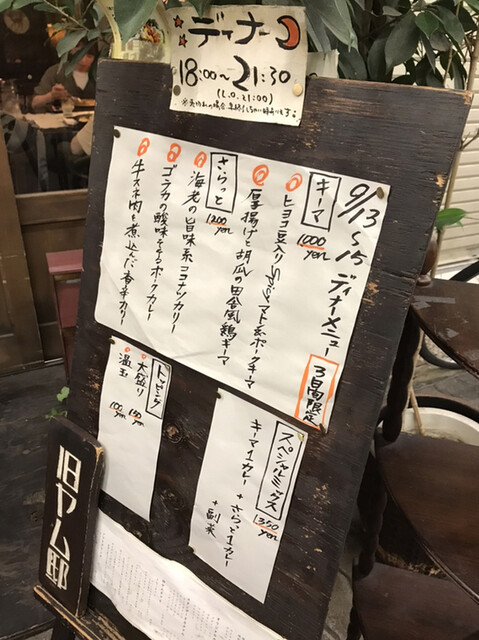 ディナー
18:00~21:30
(L.O. 21:00)
9/13~15 ディナーメニュー
3日間限定
キーマ
1000 yen
ヒヨコ豆入りspicyトマト系ポークキーマ
厚揚げと胡瓜の田舎風鶏キーマ
さらっと
1200 yen
海老の旨味系ココナッツカリー
ゴラカの酸味をするポークカレー
牛スネ肉を煮込んだ香辛カリー
スペシャルミックス
1350 yen
キーマ1カレー + さらっと1カレー
+ 副菜
トッピング
大盛り 150 yen
温玉 100 yen
旧ヤム邸